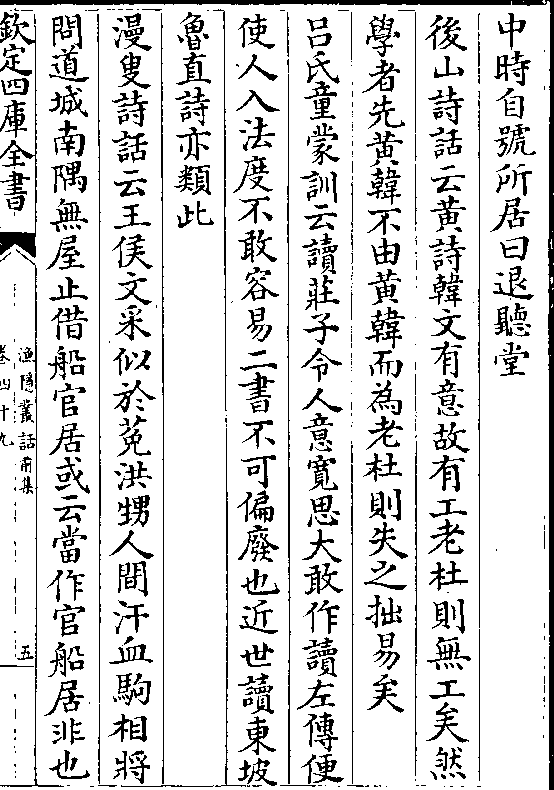 中時自號所居曰退聽堂
後山詩話云黃詩韓文有意故有工老杜則無工矣然
學者先黃韓不由黃韓而為老杜則失之拙易矣
呂氏童蒙訓云讀莊子令人意寛思大敢作讀左傳便
使人入法度不敢容易二書不可偏廢也近世讀東坡
魯直詩亦類此
漫叟詩話云王侯文采似於菟洪甥人間汗血駒相將
問道城南隅無屋止借船官居或云當作官船居非也
欽定四庫全書
漁隱叢話前集
卷四十九
五